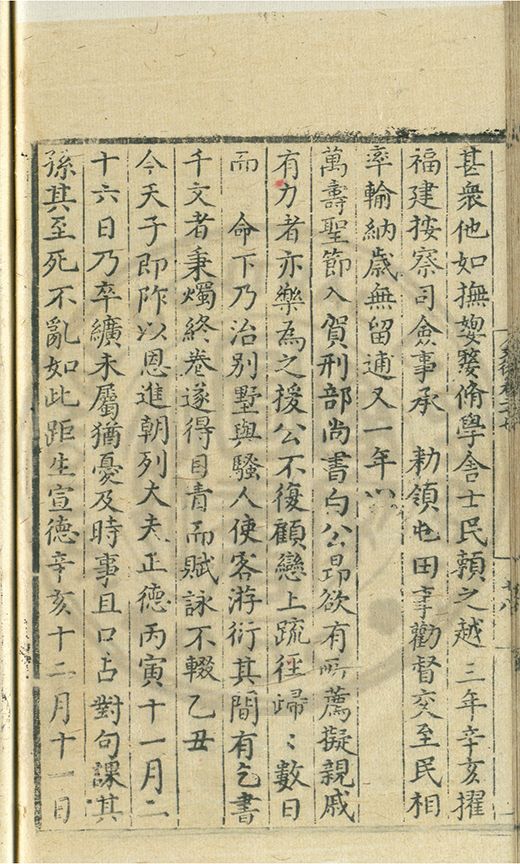 甚衆他如撫嫠婺脩學舍士民頼之越三年辛亥擢
福建按察司僉事承　勅領屯田事勸督交至民相
率輸納歳無留逋又一年以
萬壽聖節入賀刑部尚書白公昂欲有所薦擬親戚
有力者亦樂為之援公不復顧戀上疏徑歸〻數日
而　命下乃治别墅與騷人使客游衍其間有乞書
千文者秉燭終卷遂得目眚而賦詠不輟乙丑
今天子即阼以恩進朝列大夫正德丙寅十一月二
十六日乃卒纊未屬猶憂及時事且口占對句課其
孫其至死不亂如此距生宣德辛亥十二月十一日